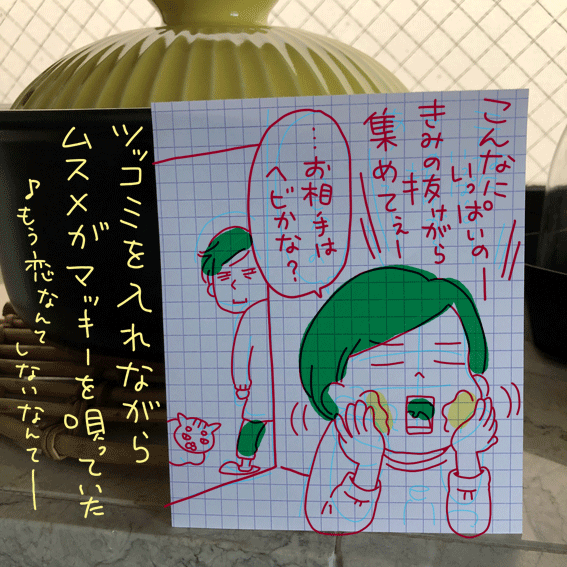 こんなに
いっぱいのー
きみの抜けがら
集めてぇー
…お相手は
ヘビかな?
ツッコミを入れながら
ムスメがマッキーを唄っていた
♪もう恋なんて
しないなんてー